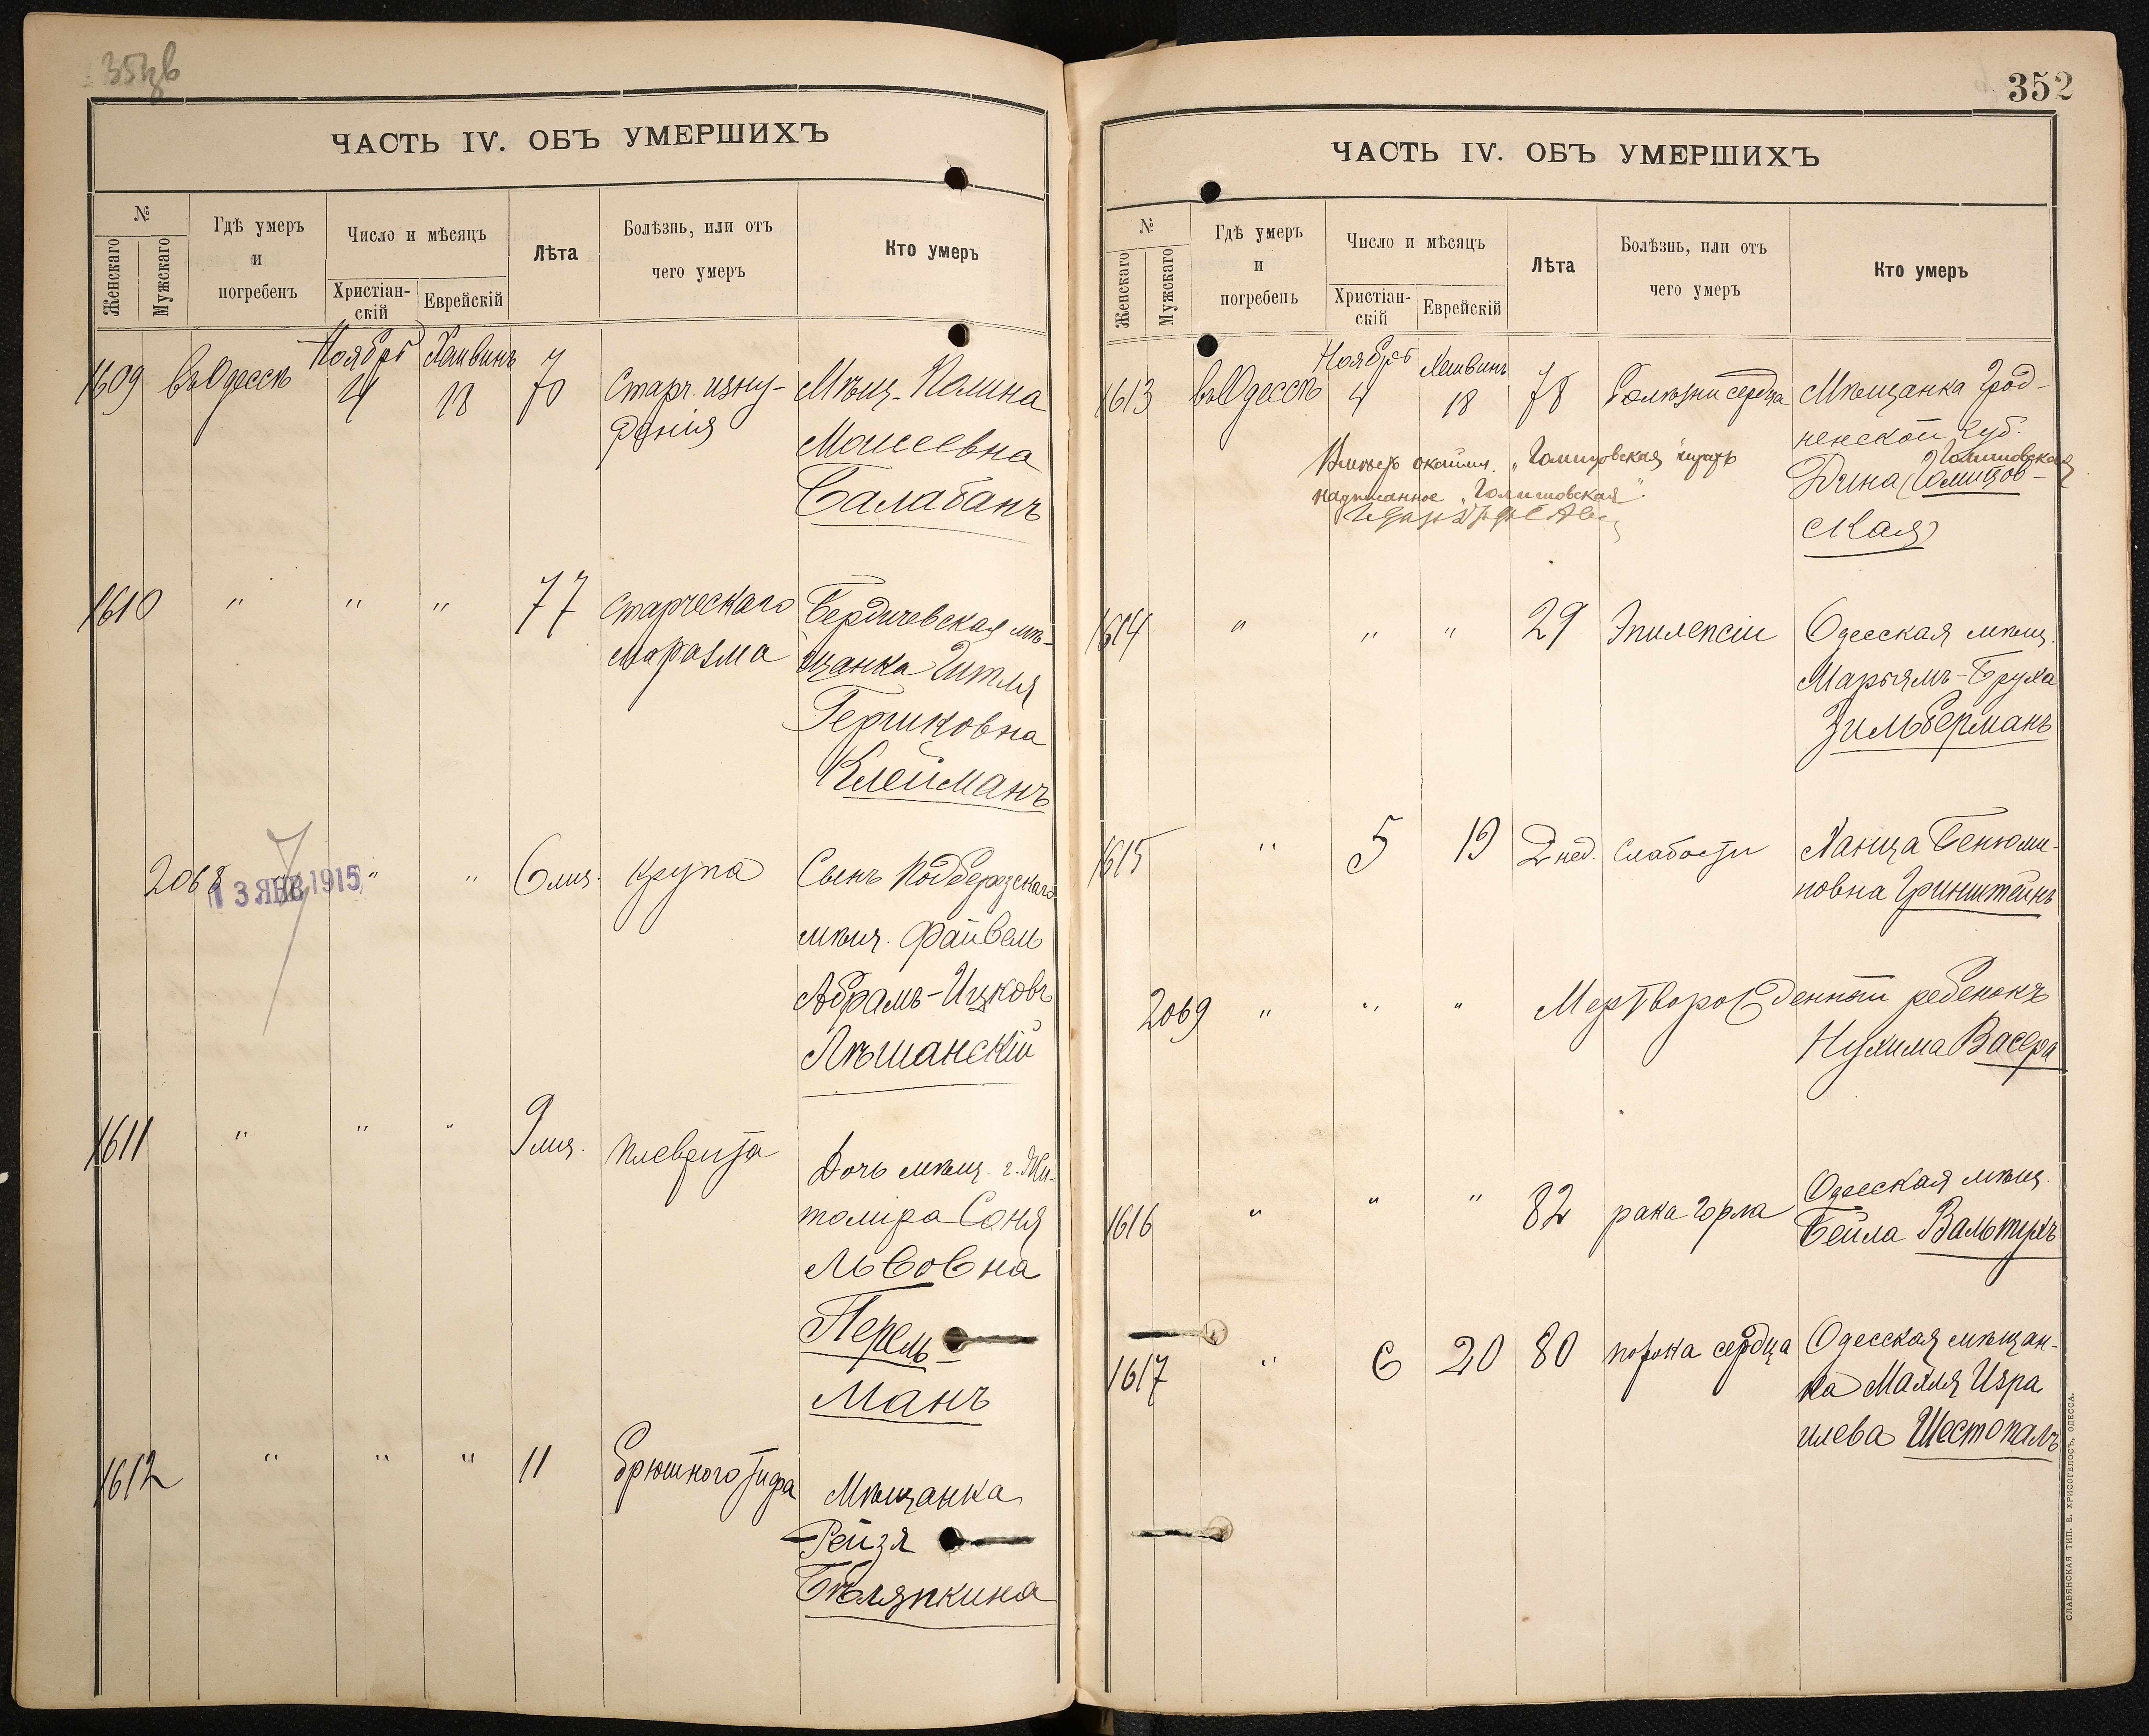 ЧАСТЬ IV. ОБЪ УМЕРШИХЪ
№
Женскаго
Мужскаго
Гдѣ умеръ
и
погребенъ
Число и мѣсяцъ
Христіан-
скій
Еврейскій
Лѣта
Болѣзнь, или отъ
чего умеръ
Кто умеръ
1609 въ Одессѣ Ноября 4 Хешвинъ 18 70 Старч. изну-
ренія
Мѣщ. Полина
Моисеевна
Балабанъ
1610 " " " 77 старческаго
маразма
Бердичевская мѣ-
щанка Гитля
Гершковна
Клейманъ
2068 " " " 6 мѣс. крупа
13 ЯНВ 1915
Сынъ Подберезскаго
мѣщ. Файвель
Абрамъ-Ицковъ
Лѣшанскій
1611 " " " 9 мѣс. плеврита
Дочь мѣщ. г. Жи-
томира Соня
Львовна
Перель-
манъ
1612 " " " 11 брюшного тифа
Мѣщанка
Рейзя
Бѣляпкина
352
ЧАСТЬ IV. ОБЪ УМЕРШИХЪ
№
Женскаго
Мужскаго
Гдѣ умеръ
и
погребенъ
Число и мѣсяцъ
Христіан-
скій
Еврейскій
Лѣта
Болѣзнь, или отъ
чего умеръ
Кто умеръ
1613 въ Одессѣ Ноября 4 Хешвинъ 18 78 болѣзни сердца
Мѣщанка Грод-
ненской губ.
Дина Гомищов-
ская
Вмѣсто
надписанное
1614 " " " 29 Эпилепсіи
Одесская мѣщ.
Марьямъ-Бруха
Зильберманъ
1615 " 5 19 2 нед. слабости
Ханца Бенюми-
новна Гринштейнъ
2069 " " " Мертворожденный ребенокъ
Нухима Васера
1616 " " " 82 рака горла
Одесская мѣщ.
Бейла Вальтухъ
1617 " 6 20 80 порока сердца
Одесская мѣщан-
ка Малля Изра
илева Шестопалъ
СЛАВЯНСКАЯ ТИП. Е. ХРИСОГЕЛОСЪ, ОДЕССА.